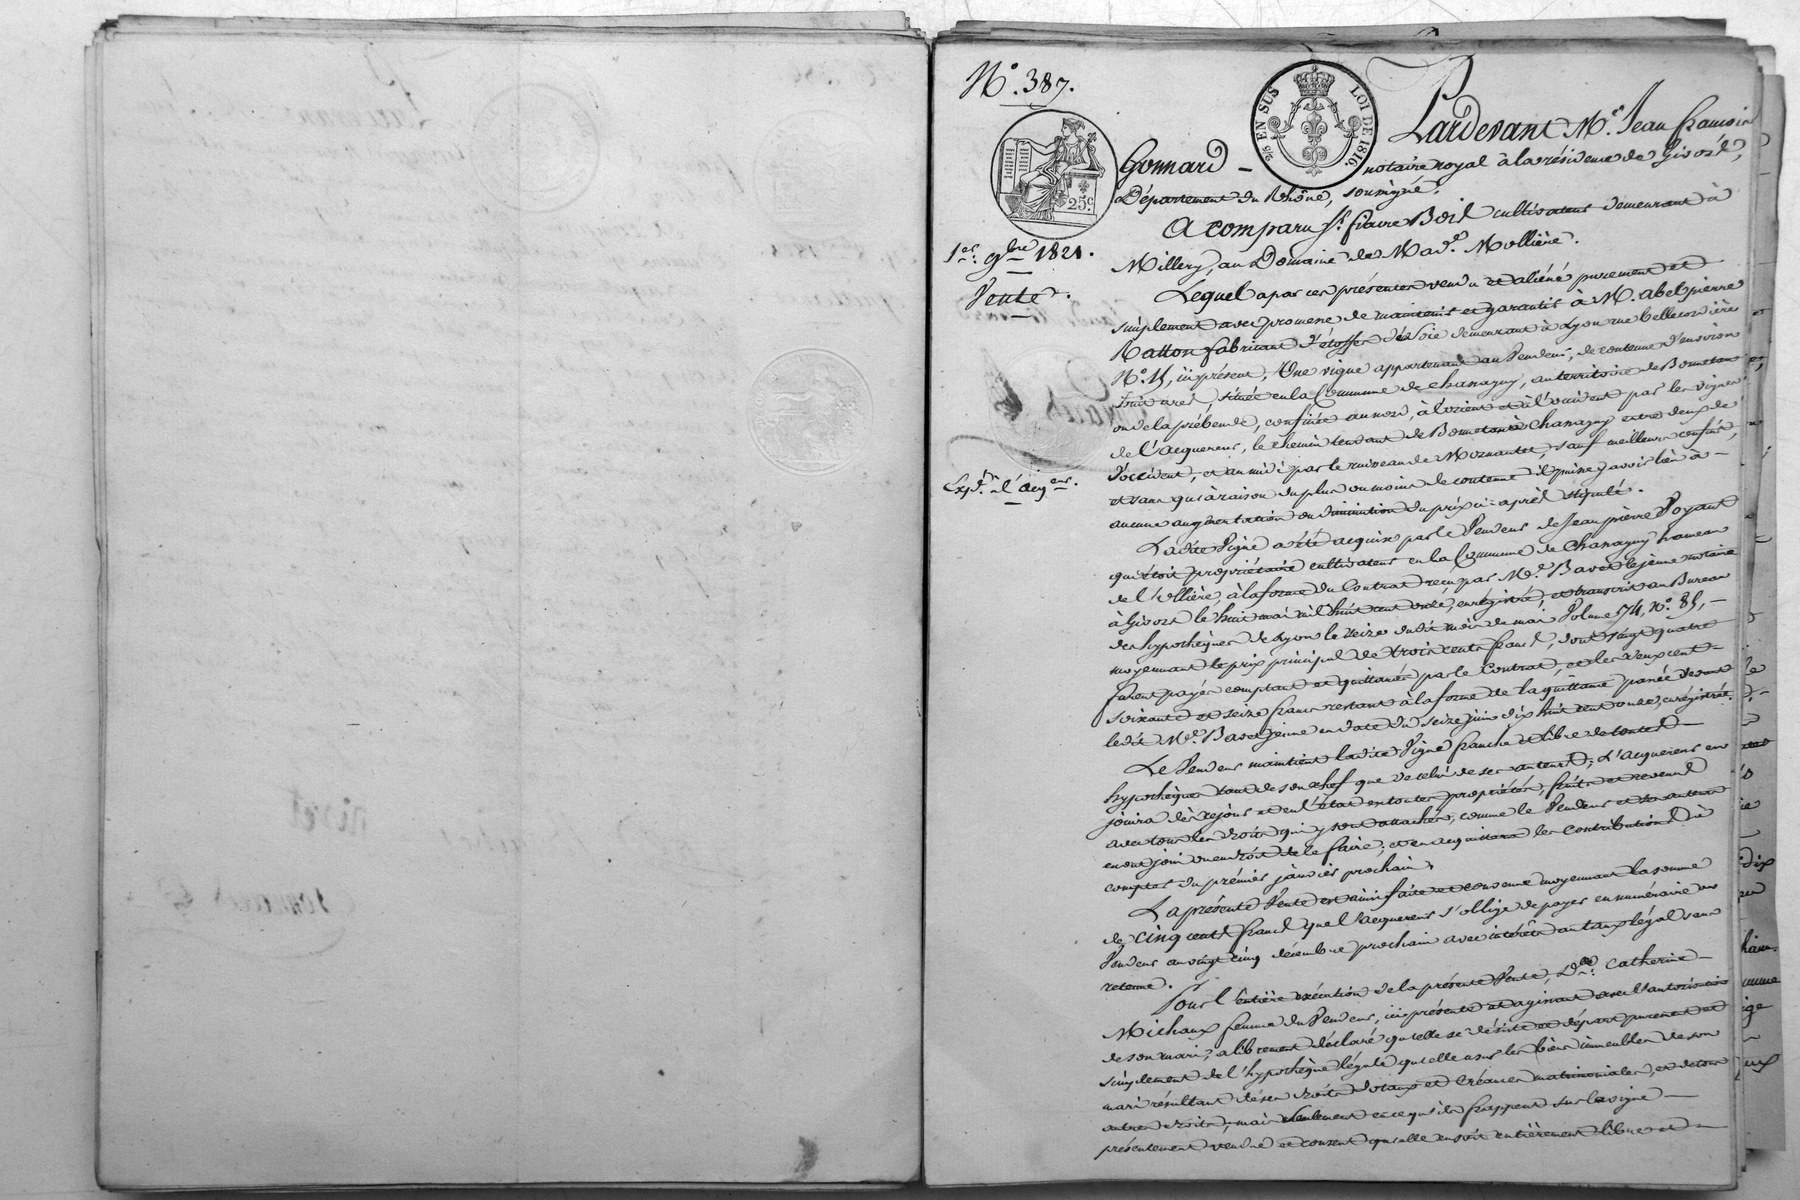 N.° 387.
EN SUS LOI DE 1816.
25 c.
1er. 9bre 1821.
Vente.
Expd.on à l'acqueur.
Pardevant Me. Jean françois
Gonnard – notaire royal à la résidence de Givors,
Département du Rhône, soussigné.
A comparu Sr. fiacre Boil cultivateur demeurant à
Millery, au Domaine de Made. Mollière.
Lequel a par ces présentes vendu et aliéné purement et
simplement avec promesse de maintenir et garantir à M. abel pierre
Ratton fabricant d'étoffes de soie demeurant à Lyon rue bellecordière
N.° 15, ici présent, Une vigne appartenant au Vendeur, de contenue d'environ
huit ares, située en la Commune de Chassagny, au territoire de
ou de la prébende, confinée au nord, à l'orient et à l'occident par les vignes
de l'acquereur, le chemin tendant de à Chassagny entre deux de
l'occident, et au midi par le ruisseau de Mornantet, sauf meilleurs confins,
et sans qu'à raison du plus ou moins de contenue il puisse y avoir lieu à –
aucune augmentation ou diminution du prix ci-après stipulé.
Ladite Vigne a été acquise par le Vendeur de Jean pierre Poyant
qui étoit propriétaire cultivateur en la Commune de Chassagny hameau
de l'ollière, à la forme du Contrat reçu par Me. Bavet le jeune notaire
à Givors le huit mai mil huit cent onze, enrégistré, et transcrit au Bureau
des hypothèques de Lyon le seize dudit mois de mai Volume 174, N.° 85, –
moyennant le prix principal de trois cents francs, dont vingt quatre
furent payés comptant et quittancés par le Contrat, et les deux cent –
soixante et seize francs restant à la forme de la quittance passée devant
ledit Me. Bavet jeune en date du seize juin dix huit cent onze, enrégistrée.
Le Vendeur maintient ladite Vigne franche et libre de toutes –
hypothèques tant de son chef que de celui de ses auteurs; L'acquereur en
jouira dès ce jour et en l'état en toutes propriétés, fruits et revenus
avec tous les droits qui y sont attachés, comme le Vendeur et ses auteurs
en ont joui ou eu droit de le faire; et en acquittera les contributions à
compter du prémier janvier prochain.
La présente Vente est ainsi faite et consentie moyennant la somme
de cinq cents francs que l'acquereur s'oblige de payer en numéraire au
Vendeur au vingt cinq décembre prochain avec intérêts au taux légal sans
retenue.
Pour l'entière exécution de la présente Vente, De. Catherine –
Michaux femme du Vendeur, ici présente et agissant avec l'autorisation
de son mari, a librement déclaré qu'elle se désiste et départ purement et
simplement de l'hypothèque légale qu'elle a sur les biens immeubles de son
mari résultant de ses droits dotaux et créances matrimoniales, et de tous
autres droits, mais seulement en ce qu'ils frappent sur la vigne –
présentement vendue et consent qu'elle en soit entièrement libre et –